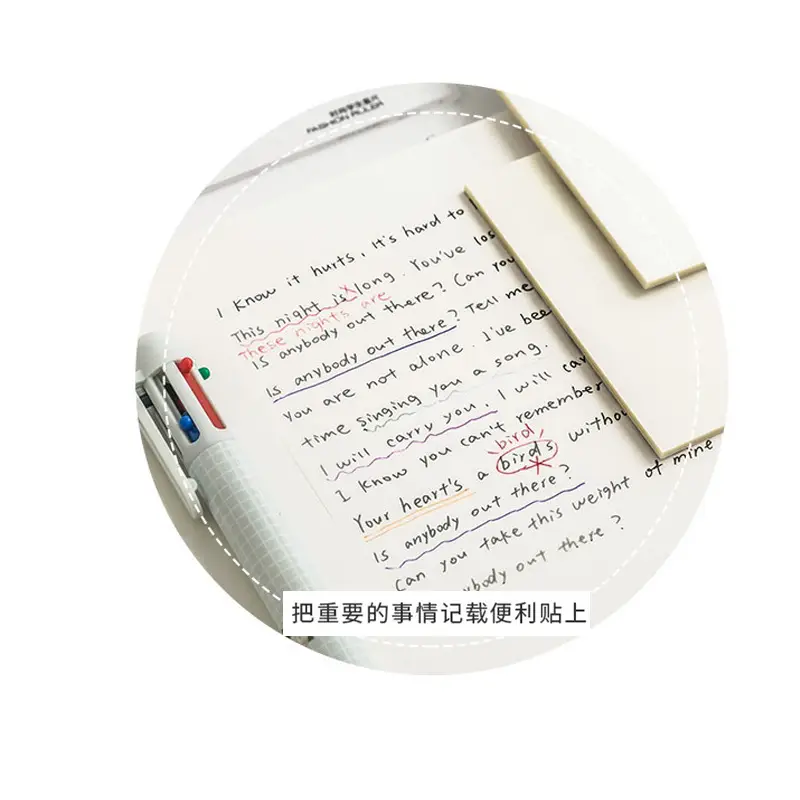 时尚学生直尺
FASHION RULER
I know it hurts, it's hard to
This night is long. You've los
These nights are
Is anybody out there? Can you
Is anybody out there? Tell me
You are not alone. I've bee
time singing you a song.
I will carry you. I will car
I know you can't remember
bird
Your heart's a birds withou
Is anybody out there?
Can you take this weight of mine
ybody out there?
把重要的事情记载便利贴上